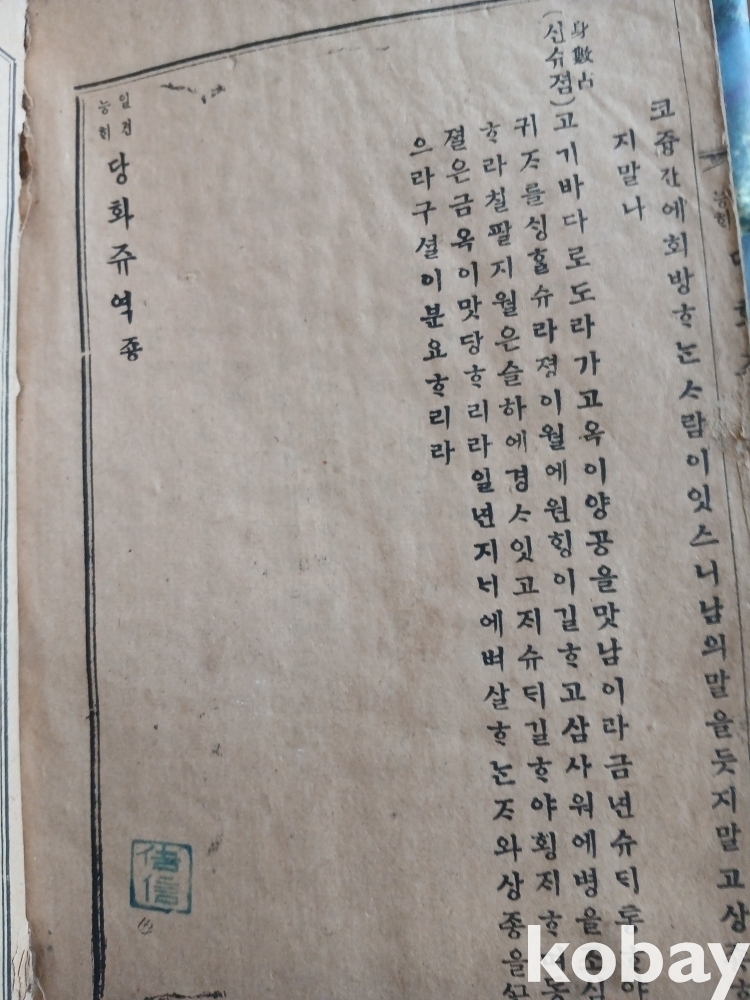 간에회방ᄒᆞᄂᆞᆫᄉᆞ람이잇스니남의말을듯지말고상
지말나
身數占
(신슈졈)고기바다로도라가고옥이양공을맛남이라금년슈
귀ᄌᆞ를ᄉᆡᆼᄒᆞᆯ슈라졍이월에원ᄒᆡᆼ이길ᄒᆞ고삼사월에병을조심
ᄒᆞ라칠팔지월은슬하에경ᄉᆞ잇고ᄌᆡ슈ᄃᆡ길ᄒᆞ야횡ᄌᆡᄒᆞ
졀은금옥이맛당ᄒᆞ리라일년지ᄂᆡ에벼살ᄒᆞᄂᆞᆫᄌᆞ와상죵을
으라구셜이분요ᄒᆞ리라
일견
능ᄒᆡ
당화쥬역죵
kobay